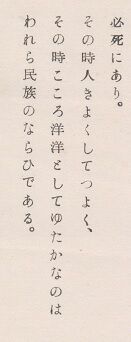 必死にあり。
その時人きよくしてつよく、
その時こころ洋洋としてゆたかなのは
われら民族のならひである。